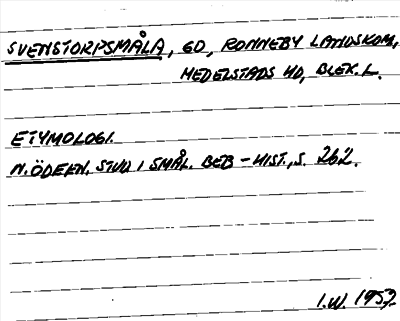 SVENSTORPSMÅLA, GD, RONNEBY LANDSKOM,
MEDELSTADS HD, BLEK. L.
ETYMOLOGI.
N. ÖDEEN. STUD I SMÅL. BEB-HIST., S. 262.
I.W. 1957.